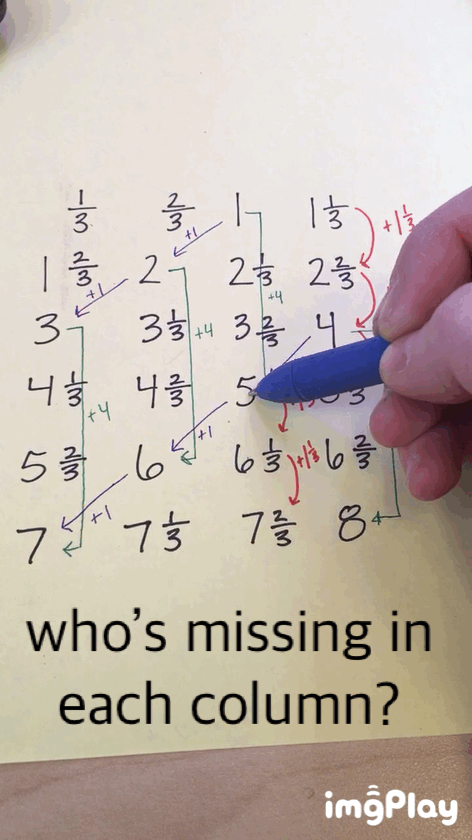 1/3 2/3 1 1 1/3
+1 +1 1/3
1 2/3 2 2 1/3 2 2/3
+1 +4
3 3 1/3 3 2/3 4
+4
4 1/3 4 2/3 5
+4
+1
5 2/3 6 6 1/3 +1 1/3 6 2/3
+1
7 7 1/3 7 2/3 8
who's missing in
each column?
imgPlay